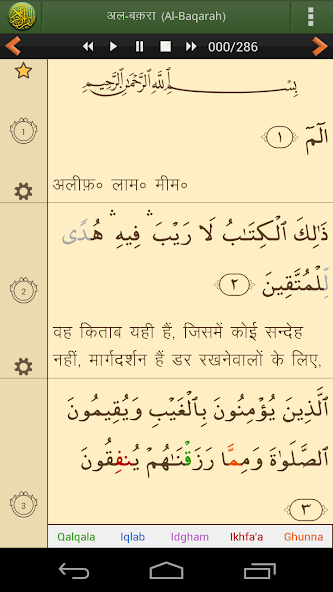 अल-बक़रा (Al-Baqarah)
000/286
بِسْمِ ٱللَّهِ ٱلرَّحْمَٰنِ ٱلرَّحِيمِ
1
الٓمٓ ١
अलीफ़॰ लाम॰ मीम॰
ذَٰلِكَ ٱلْكِتَـٰبُ لَا رَيْبَ ۛ فِيهِ ۛ هُدًى
2
لِّلْمُتَّقِينَ ٢
वह किताब यही हैं, जिसमें कोई सन्देह
नहीं, मार्गदर्शन हैं डर रखनेवालों के लिए,
ٱلَّذِينَ يُؤْمِنُونَ بِٱلْغَيْبِ وَيُقِيمُونَ
ٱلصَّلَوٰةَ وَمِمَّا رَزَقْنَـٰهُمْ يُنفِقُونَ
3
٣
Qalqala Iqlab Idgham Ikhfa'a Ghunna